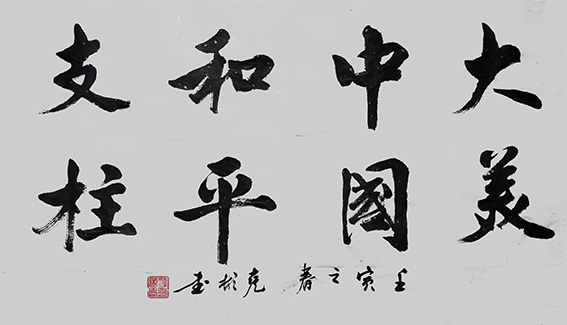 大美
中國
和平
支柱
壬寅之春 克彬书